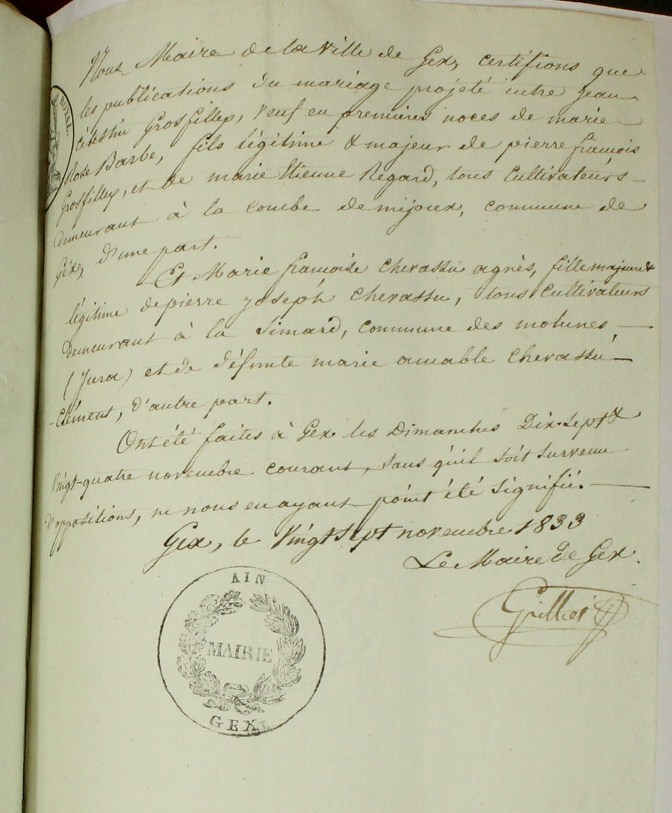 Nous Maire de la ville de Gex, certifions que
les publications du mariage projeté entre jean
célestin Grosfilley, veuf en premières noces de marie
Rose Barbe, fils légitime & majeur de pierre françois
Grosfilley, et de marie Etienne Regard, tous cultivateurs
demeurant à la combe de mijoux, commune de
Gex, d'une part.
Et Marie françoise chevassu agnès, fille majeure &
légitime de pierre joseph chevassu, tous cultivateurs
demeurant à la Simard, commune des molunes
(Jura) et de défunte marie amable chevassu
-clément, d'autre part.
Ont été faites à Gex les Dimanches Dix-sept &
vingt-quatre novembre courant, sans qu'il soit survenu
d'oppositions, ni nous en ayant point été signifié.
Gex, le vingt sept novembre 1833
Le Maire de Gex.
ROYAL
AIN
MAIRIE
GEX